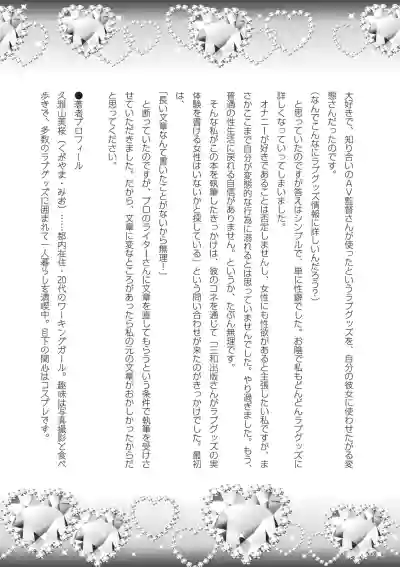 大好きで、知り合いのAV監督さんが使ったというラブグッズを、自分の彼女に使わせたがる変
態さんだったのです。
(なんでこんなにラブグッズ情報に詳しいんだろう?)
と思っていたのですが答えはシンプルで、単に性癖でした。お陰で私もどんどんラブグッズに
詳しくなっていってしまいました。
オナニーが好きであることは否定しませんし、女性にも性欲があると主張したい私ですが、ま
さかここまで自分が変態的な行為に溺れるとは思っていませんでした。やり過ぎました。もう、
普通の性生活に戻れる自信がありません。というか、たぶん無理です。
そんな私がこの本を執筆したきっかけは、彼のコネを通じて「三和出版さんがラブグッズの実
体験を書ける女性はいないかと探している」という問い合わせが来たのがきっかけでした。最初
は、
「長い文章なんて書いたことがないから無理!」
と断っていたのですが、プロのライターさんに文章を直してもらうという条件で執筆を受けさ
せていただきました。だから、文章に変なところがあったら私の元の文章がおかしかったからだ
と思ってください。
●著者プロフィール
久羽山美桜(くがやま・みお)……都内在住・20代のワーキングガール。趣味は写真撮影と食べ
歩きで、多数のラブグッズに囲まれて一人暮らしを満喫中。目下の関心はコスプレです。